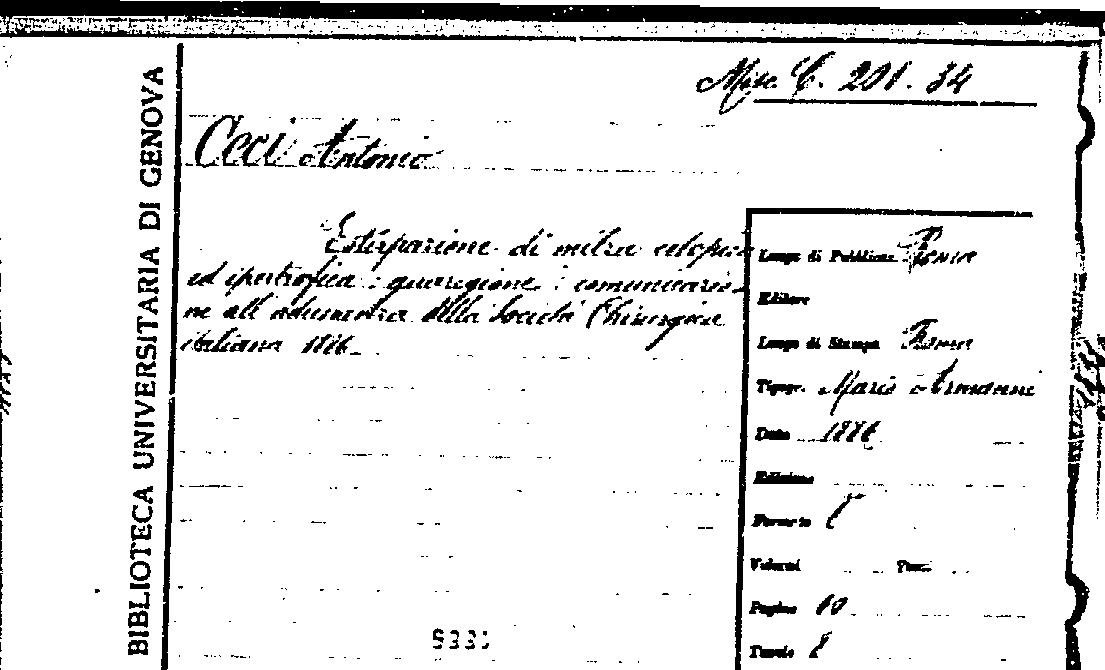 BIBLIOTECA UNIVERSITARIA DI GENOVA
Misc. C. 201. 34
Ceci Antonio
Estirpazione di milza ectopica
ed ipertrofica: guarigione: comunicazio-
ne all'adunanza della Società Chirurgica
italiana 1886
Luogo di Pubblicaz. Roma
Editore
Luogo di Stampa Roma
Tipogr. Mario Armanni
Data 1886
Edizione
Formato
Volumi
Pagine 10
Tavole